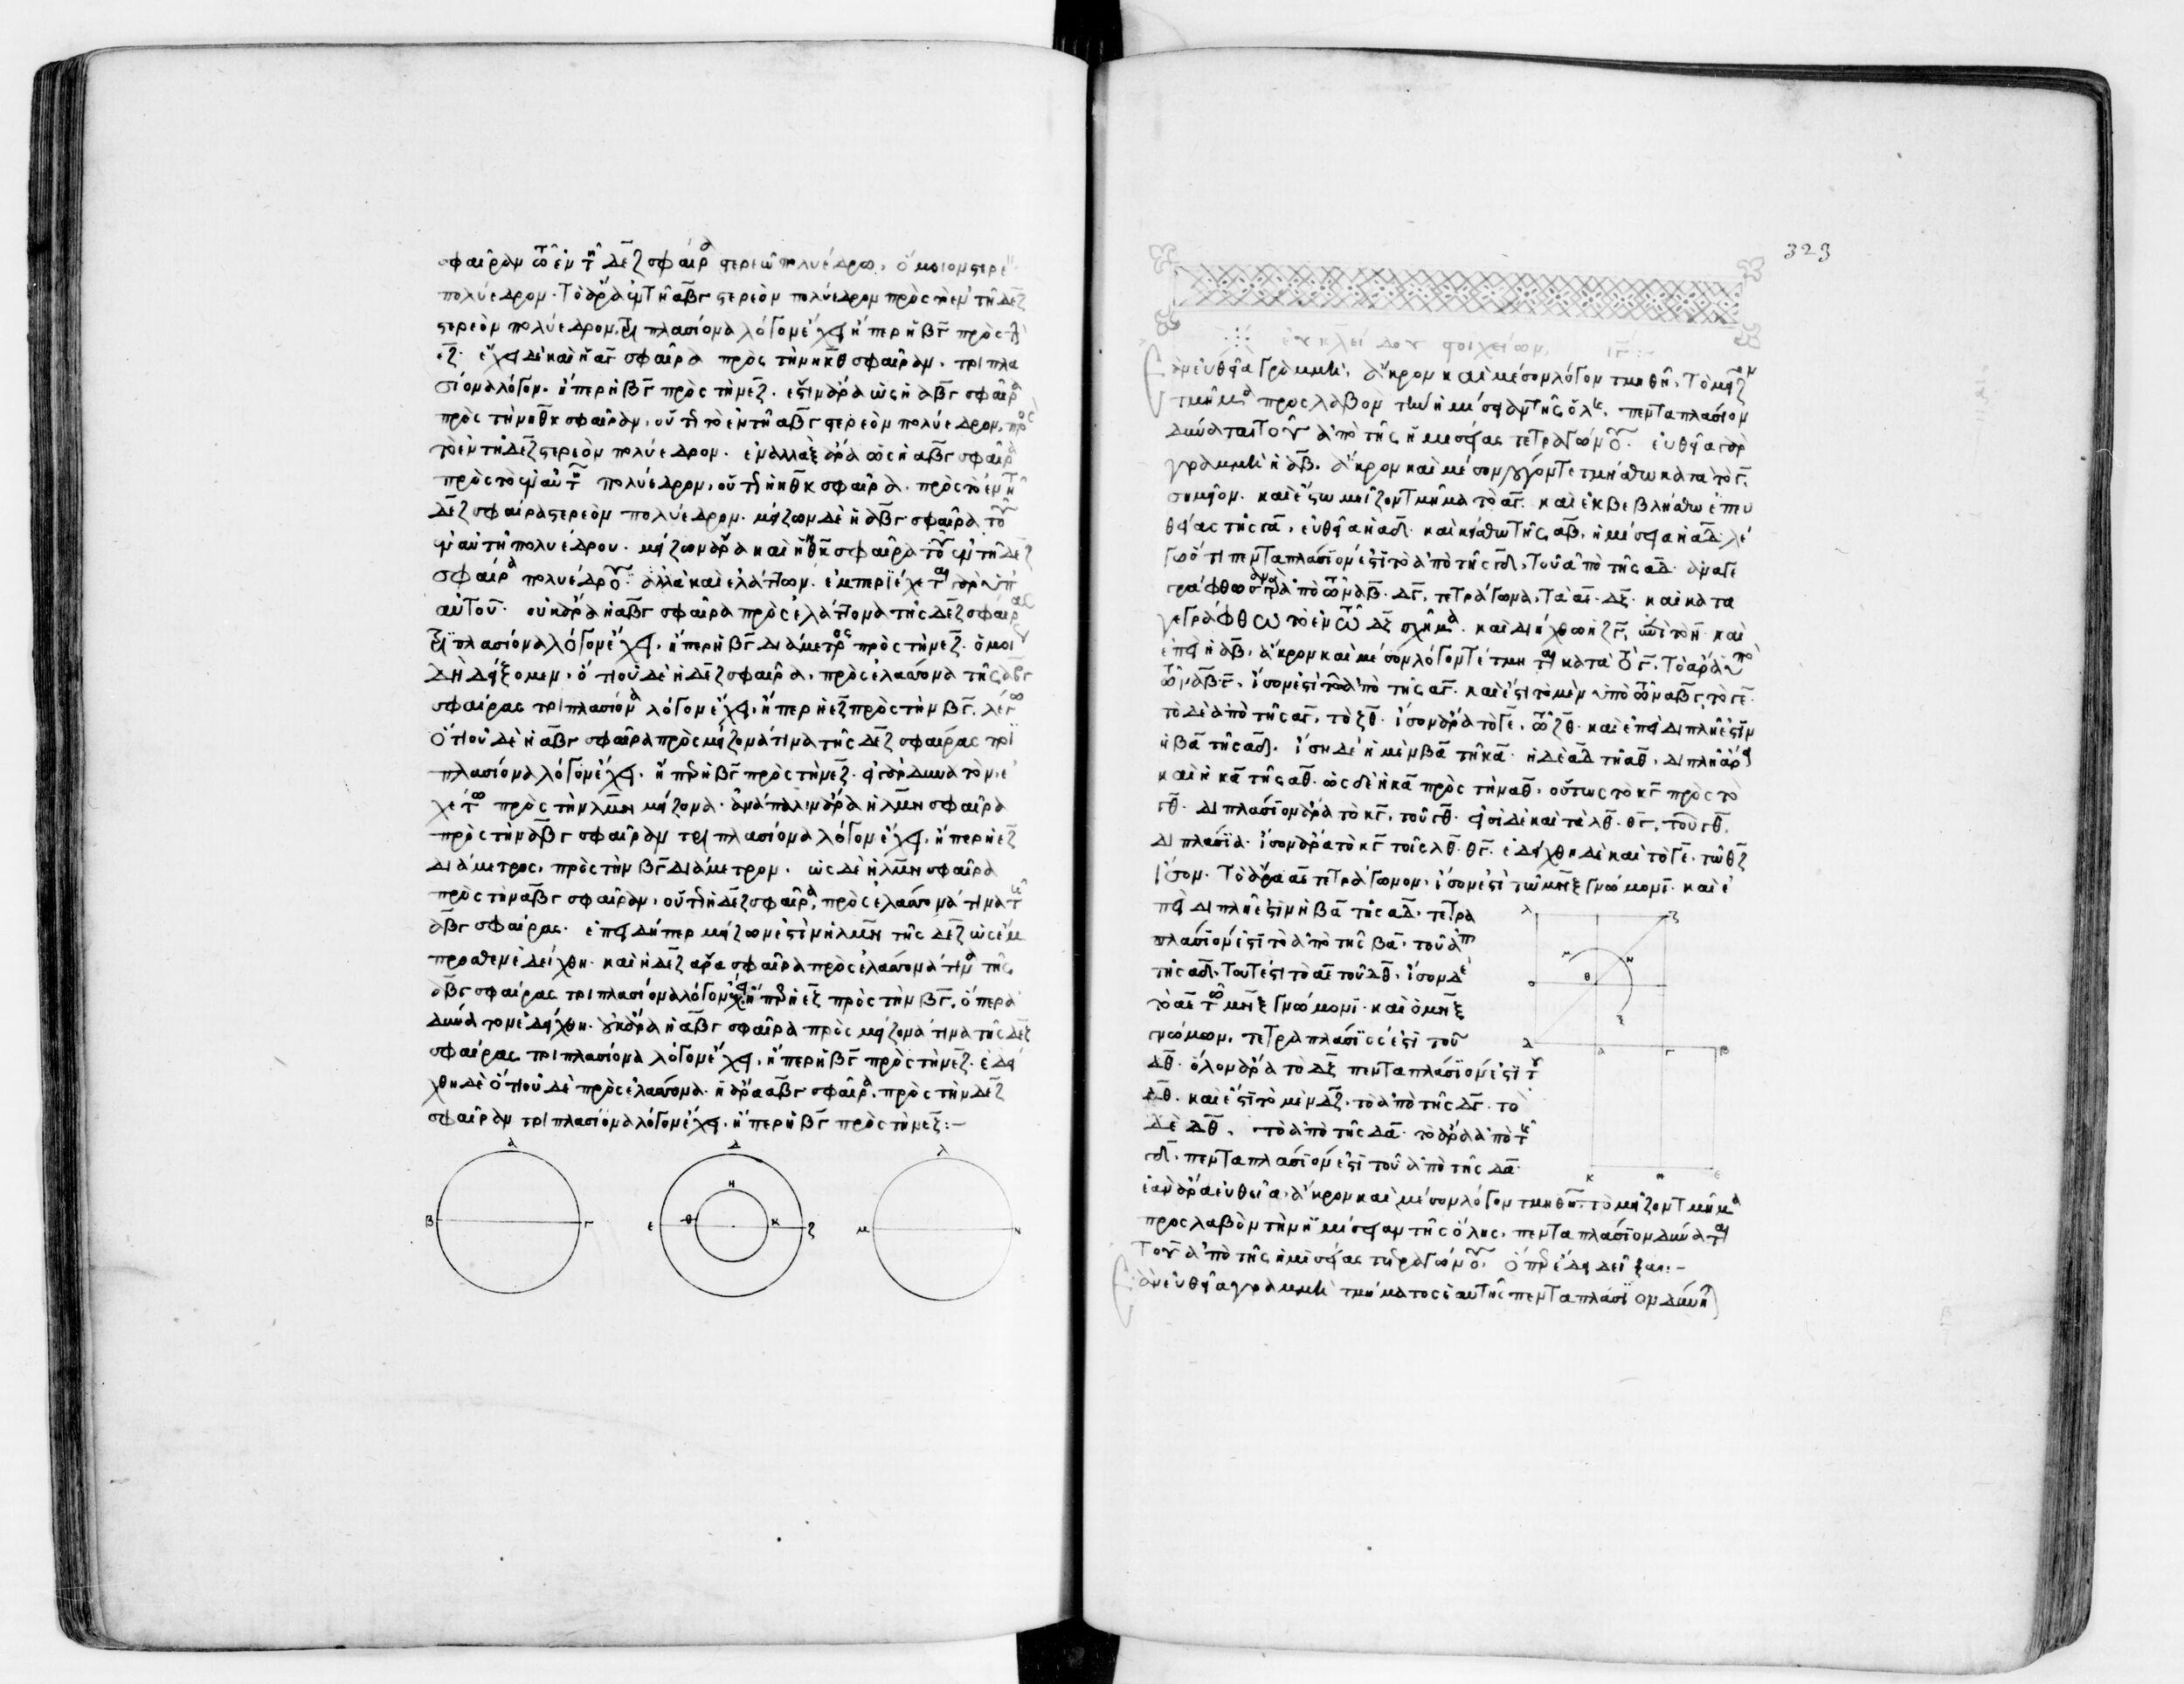 σφαῖραν τῶ ἐν τῆ δεζ σφαίρα στερεῶ πολυέδρω, ὅμοιον στερεὸ
πολύεδρον. τὸ ἄρα ἐν τῆ αβγ στερεὸν πολύεδρον πρὸς τὸ ἐν τῆ δεζ
στερεὸν πολύεδρον, τριπλασίονα λόγον ἔχει ἤπερ ἡ βγ πρὸς τὴ
εζ. ἔχει δὲ καὶ ἡ αβγ σφαῖρα πρὸς τὴν ηκθ σφαῖραν, τριπλα
σίονα λόγον. ἤπερ ἡ βγ πρὸς τὴν εζ. ἔστιν ἄρα ὡς ἡ αβγ σφαῖρα
πρὸς τὴν ηθκ σφαῖραν, οὕτω τὸ ἐν τῆ αβγ στερεὸν πολύεδρον, πρὸς
τὸ ἐν τῆ δεζ στερεὸν πολύεδρον. ἐναλλὰξ ἄρα ὡς ἡ αβγ σφαῖρα
πρὸς τὸ ἐν αὐτῆ πολύεδρον, οὕτω ἡ ηθκ σφαῖρα. πρὸς τὸ ἐν τῆ
δεζ σφαίρα στερεὸν πολύεδρον. μείζων δὲ ἡ αβγ σφαῖρα τοῦ
ἐν αὐτῆ πολυέδρου. μείζων ἄρα καὶ ἡ ηθκ σφαῖρα τοῦ ἐν τῆ δεζ
σφαίρα πολυέδρου. ἀλλὰ καὶ ἐλάττων. ἐμπεριέχεται γὰρ ὑπ
αὐτοῦ. οὐκ ἄρα ἡ αβγ σφαῖρα πρὸς ἐλάττονα τῆς δεζ σφαίρας
τριπλασίονα λόγον ἔχει, ἤπερ ἡ βγ διάμετρος πρὸς τὴν εζ. ὁμοί
δὴ δείξομεν, ὅτι οὐδὲ ἡ δεζ σφαῖρα, πρὸς ἐλάσσονα τῆς αβγ
σφαίρας τριπλασίονα λόγον ἔχει, ἤπερ ἡ εζ πρὸς τὴν βγ. λέγω
ὅτι οὐδὲ ἡ αβγ σφαῖρα πρὸς μείζονά τινα τῆς δεζ σφαίρας τρι
πλασίονα λόγον ἔχει, ἤπερ ἡ βγ πρὸς τὴν εζ. εἰ γὰρ δυνατόν, ἐ
χέτω πρὸς τὴν λμν μείζονα. ἀνάπαλιν ἄρα ἡ λμν σφαῖρα
πρὸς τὴν αβγ σφαῖραν τριπλασίονα λόγον ἔχει, ἤπερ ἡ εζ
διάμετρος, πρὸς τὴν βγ διάμετρον. ὡς δὲ ἡ λμν σφαῖρα
πρὸς τὴν αβγ σφαῖραν, οὕτω ἡ δεζ σφαῖρα, πρὸς ἐλάσσονά τινα τῆς
αβγ σφαίρας. ἐπειδήπερ μείζων ἐστὶν ἡ λμν τῆς δεζ ὡς ἔμ
προσθεν ἐδείχθη. καὶ ἡ δεζ ἄρα σφαῖρα πρὸς ἐλάσσονά τινα τῆς
αβγ σφαίρας τριπλασίονα λόγον ἔχει ἤπερ ἡ εζ πρὸς τὴν βγ. ὅπερ ἀ
δύνατον ἐδείχθη. οὐκ ἄρα ἡ αβγ σφαῖρα πρὸς μείζονά τινα τῆς δεζ
σφαίρας τριπλασίονα λόγον ἔχει, ἤπερ ἡ βγ πρὸς τὴν εζ. ἐδεί
χθη δὲ ὅτι οὐδὲ πρὸς ἐλάσσονα. ἡ ἄρα αβγ σφαῖρα, πρὸς τὴν δεζ
σφαῖραν τριπλασίονα λόγον ἔχει. ἤπερ ἡ βγ πρὸς τὴν εζ:–
α δ λ
η
β γ ε θ κ ζ μ ν
323
εὐκλείδου στοιχείων ιγ:–
Ἐὰν εὐθεῖα γραμμὴ, ἄκρον καὶ μέσον λόγον τμηθῆ, τὸ μεῖζον
τμῆμα προσλαβὸν τὴν ἡμίσειαν τῆς ὅλης, πενταπλάσιον
δύναται τοῦ ἀπὸ τῆς ἡμισείας τετραγώνου. εὐθεῖα γὰρ
γραμμὴ ἡ αβ, ἄκρον καὶ μέσον λόγον τετμήσθω κατὰ τὸ γ
σημεῖον. καὶ ἔστω μεῖζον τμῆμα τὸ αγ. καὶ ἐκβεβλήσθω ἐπευ
θείας τῆς γα, εὐθεῖα ἡ αδ. καὶ κείσθω τῆς αβ, ἡμίσεια ἡ αδ λέ
γω ὅτι πενταπλάσιόν ἐστι τὸ ἀπὸ τῆς γδ, τοῦ ἀπὸ τῆς αδ. ἀναγε
γράφθωσαν γὰρ ἀπὸ τῶν αβ. δγ, τετράγωνα, τὰ αε. δζ. καὶ κατα
γεγράφθω τὸ ἐν τῶ δζ σχῆμα. καὶ διήχθω ἡ ζγ, ἐπὶ τὸ η. καὶ
ἐπεὶ ἡ αβ, ἄκρον καὶ μέσον λόγον τέτμηται κατὰ τὸ γ, τὸ ἄρα ὑπὸ
τῶν αβγ, ἴσον ἐστὶ τῶ ἀπὸ τῆς αγ. καὶ ἔστι τὸ μὲν ὑπὸ τῶν αβγ, τὸ γε.
τὸ δὲ ἀπὸ τῆς αγ, τὸ ζθ. ἴσον ἄρα τὸ γε, τῶ ζθ. καὶ ἐπεὶ διπλῆ ἐστιν
ἡ βα τῆς αδ. ἴση δὲ ἡ μὲν βα τῆ κα. ἡ δὲ αδ τῆ αθ, διπλῆ ἄρα
καὶ ἡ κα τῆς αθ. ὡς δὲ ἡ κα πρὸς τὴν αθ, οὕτως τὸ κγ πρὸς τὸ
γθ. διπλάσιον ἄρα τὸ κγ, τοῦ γθ. εἰσὶ δὲ καὶ τὰ λθ. θγ, τοῦ γθ,
διπλάσια. ἴσον ἄρα τὸ κγ τοῖς λθ. θγ. ἐδείχθη δὲ καὶ τὸ γε. τῶ θζ
ἴσον. τὸ ἄρα αε τετράγωνον, ἴσον ἐστὶ τῶ μνξ γνώμονι. καὶ ἐ
πεὶ διπλῆ ἐστιν ἡ βα τῆς αδ, τετρα
πλάσιόν ἐστι τὸ ἀπὸ τῆς βα. τοῦ ἀπὸ
τῆς αδ, τουτέστι τὸ αε τοῦ δθ. ἴσον δὲ
τὸ αε τῶ μνξ γνώμονι. καὶ ὁ μνξ
γνώμων, τετραπλάσιός ἐστι τοῦ
δθ. ὅλον ἄρα τὸ δζ πενταπλάσιόν ἐστι τοῦ
δθ. καὶ ἔστι τὸ μὲν δζ, τὸ ἀπὸ τῆς δγ. τὸ
δὲ δθ, τὸ ἀπὸ τῆς δα. τὸ ἄρα ἀπὸ τῆς
γδ, πενταπλάσιόν ἐστι τοῦ ἀπὸ τῆς δα.
ἐὰν ἄρα εὐθεῖα, ἄκρον καὶ μέσον λόγον τμηθῆ, τὸ μεῖζον τμῆμα
προσλαβὸν τὴν ἡμίσειαν τῆς ὅλης, πενταπλάσιον δύναται
τοῦ ἀπὸ τῆς ἡμισείας τετραγώνου. ὅπερ ἔδει δεῖξαι:–
Ἐὰν εὐθεῖα γραμμὴ τμήματος ἑαυτῆς πενταπλάσιον δύνη
λ ζ
μ ν
θ
ξ
δ α γ β
κ η ε